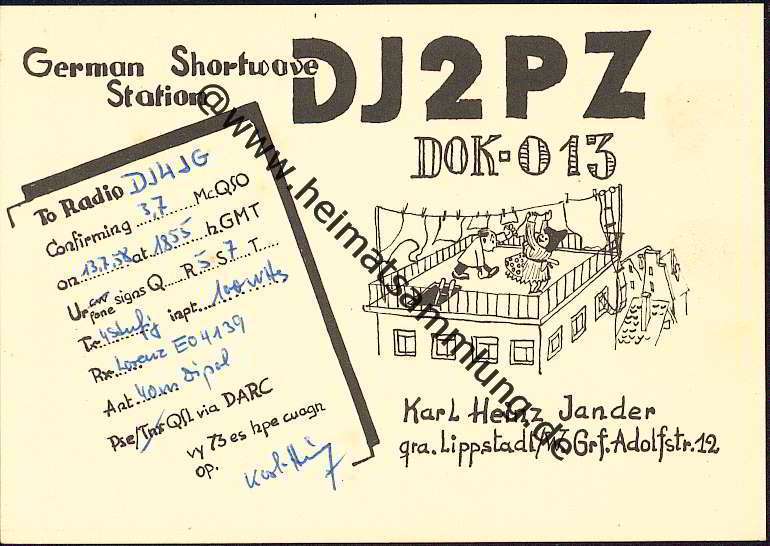 German Shortwave
Station
DJ2PZ
DOK-O13
To Radio DJ4JG
Confirming 3,7 Mc.QSO
on 13.7.58 at 1855 h.GMT
Ur cw fone signs Q R 5 S 7 T
Tx inpt.
Rx. Lorenz EO4139
Ant. 40m Dipol
Pse/Tnx QSL via DARC
vy 73 es hpe cuagn
op.
Karl Heinz Jander
qra. Lippstadt/W Grf. Adolfstr. 12
@www.heimatsammlung.de